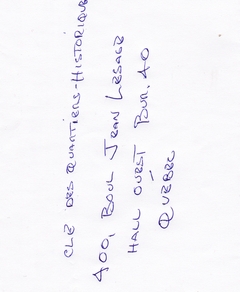 CLÉ DES QUARTIERS-HISTORIQUE
400, BOUL JEAN LESAGE
HALL OUEST BUR. 40
QUÉBEC